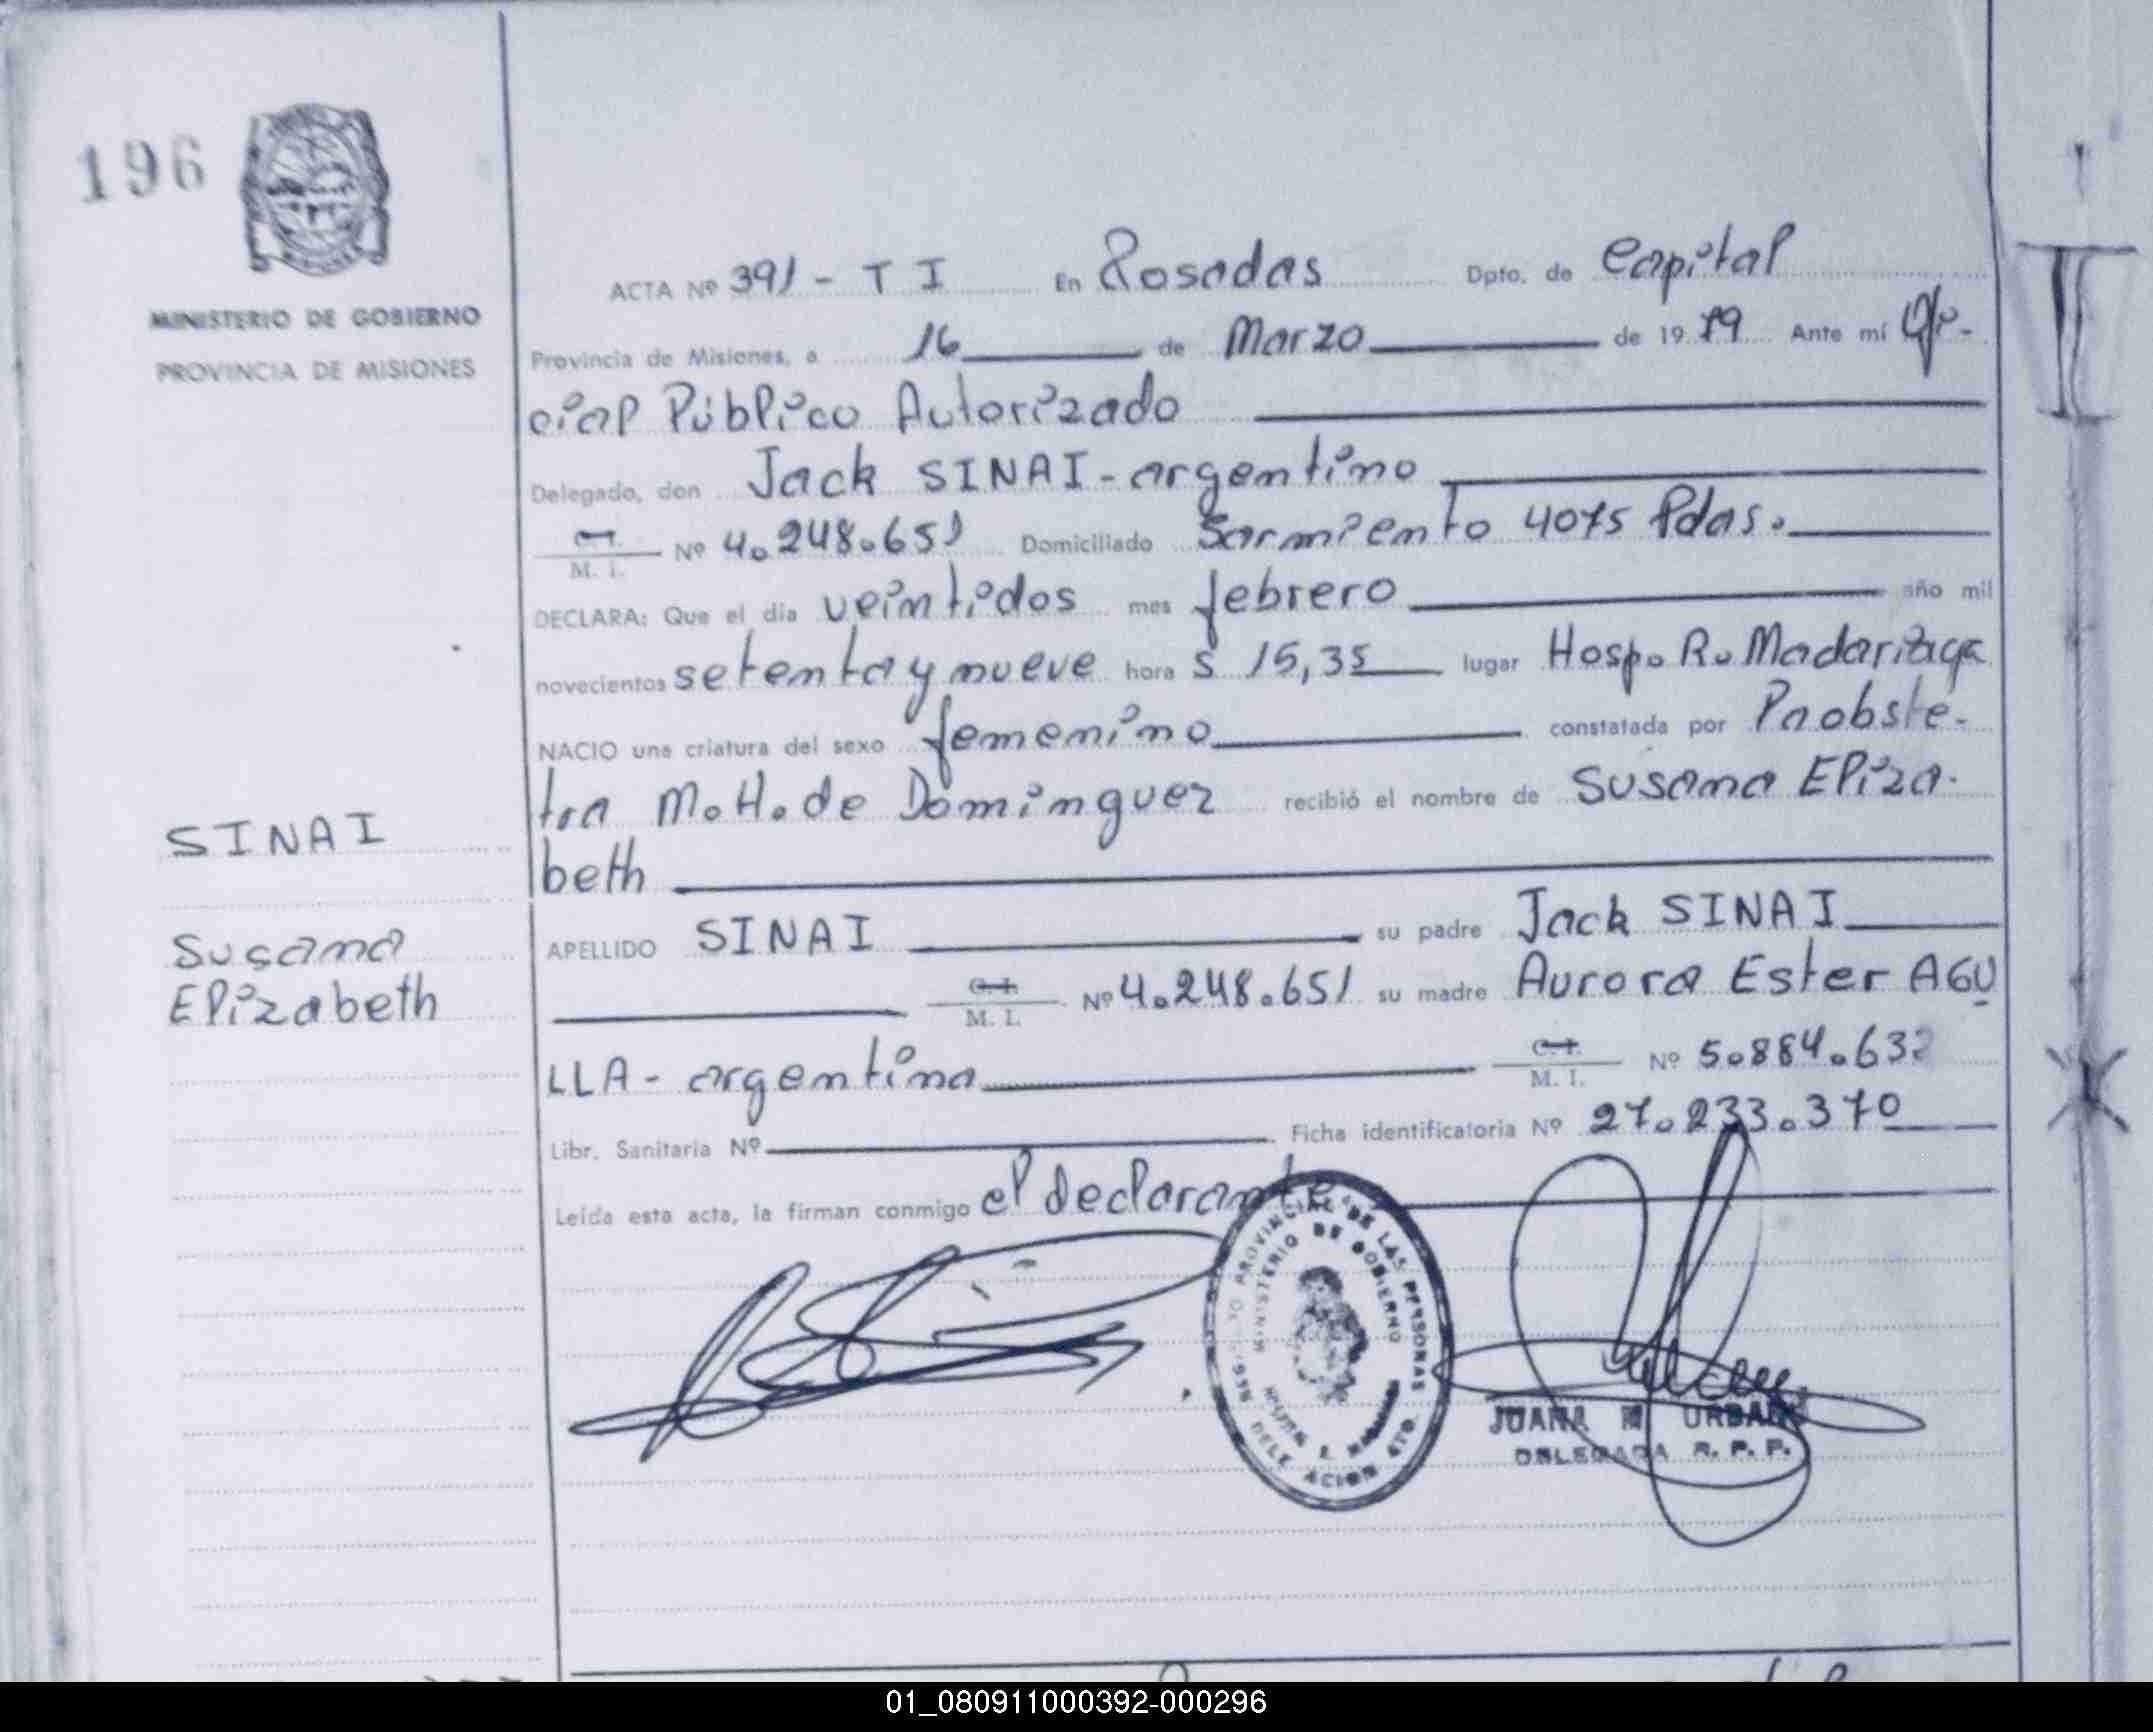 196
MINISTERIO DE GOBIERNO
PROVINCIA DE MISIONES
ACTA Nº 391 - T I En Posadas Dpto. de Capital
Provincia de Misiones, a 16 de Marzo de 1979 Ante mí Ofi-
cial Público Autorizado
Delegado, don Jack SINAI - argentino
C.I. M. I. Nº 4.248.651 Domiciliado Sarmiento 4075 Pdas.
DECLARA: Que el día veintidos mes febrero año mil
novecientos setenta y nueve hora s 15,35 lugar Hosp. R. Madariaga
NACIO una criatura del sexo femenino constatada por Paobste-
tra M.H. de Dominguez recibió el nombre de Susana Eliza-
beth
SINAI
Susana
Elizabeth
APELLIDO SINAI su padre Jack SINAI
C.I. M. I. Nº 4.248.651 su madre Aurora Ester AGU
LLA - argentina C.I. M. I. Nº 5.884.632
Libr. Sanitaria Nº Ficha identificatoria Nº 27.233.370
Leída esta acta, la firman conmigo el declarante
PROVINCIAL DE LAS PERSONAS
MINISTERIO DE GOBIERNO
DELEGACION
JUANA M URBAN
DELEGADA R. P. P.
01_080911000392-000296